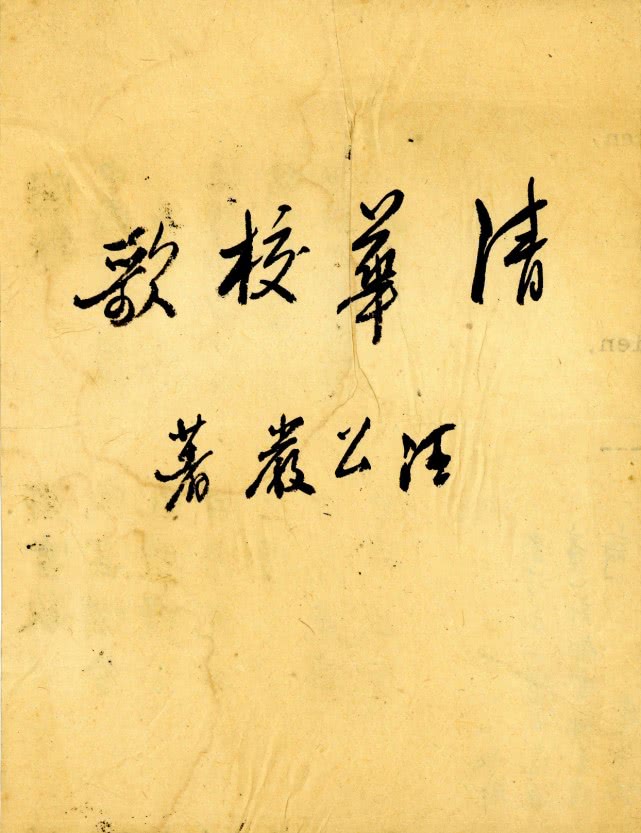 清華校歌
汪公巖著